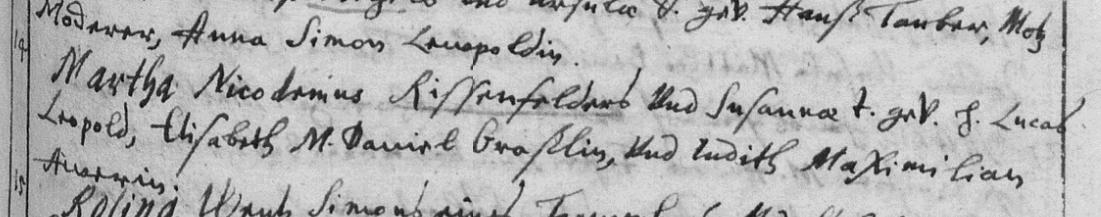 und Ursulæ T. gev. Hanß Tauber, Motz
Moderer, Anna Simon Leuopoldin.
14 Martha Nicodemus Rissenfelders Und Susannæ t. geV. H. Lucas
Leopold, Elisabeth M. Daniel Graßlin, Und Judith Maximilian
Auerin.
15 Rosina